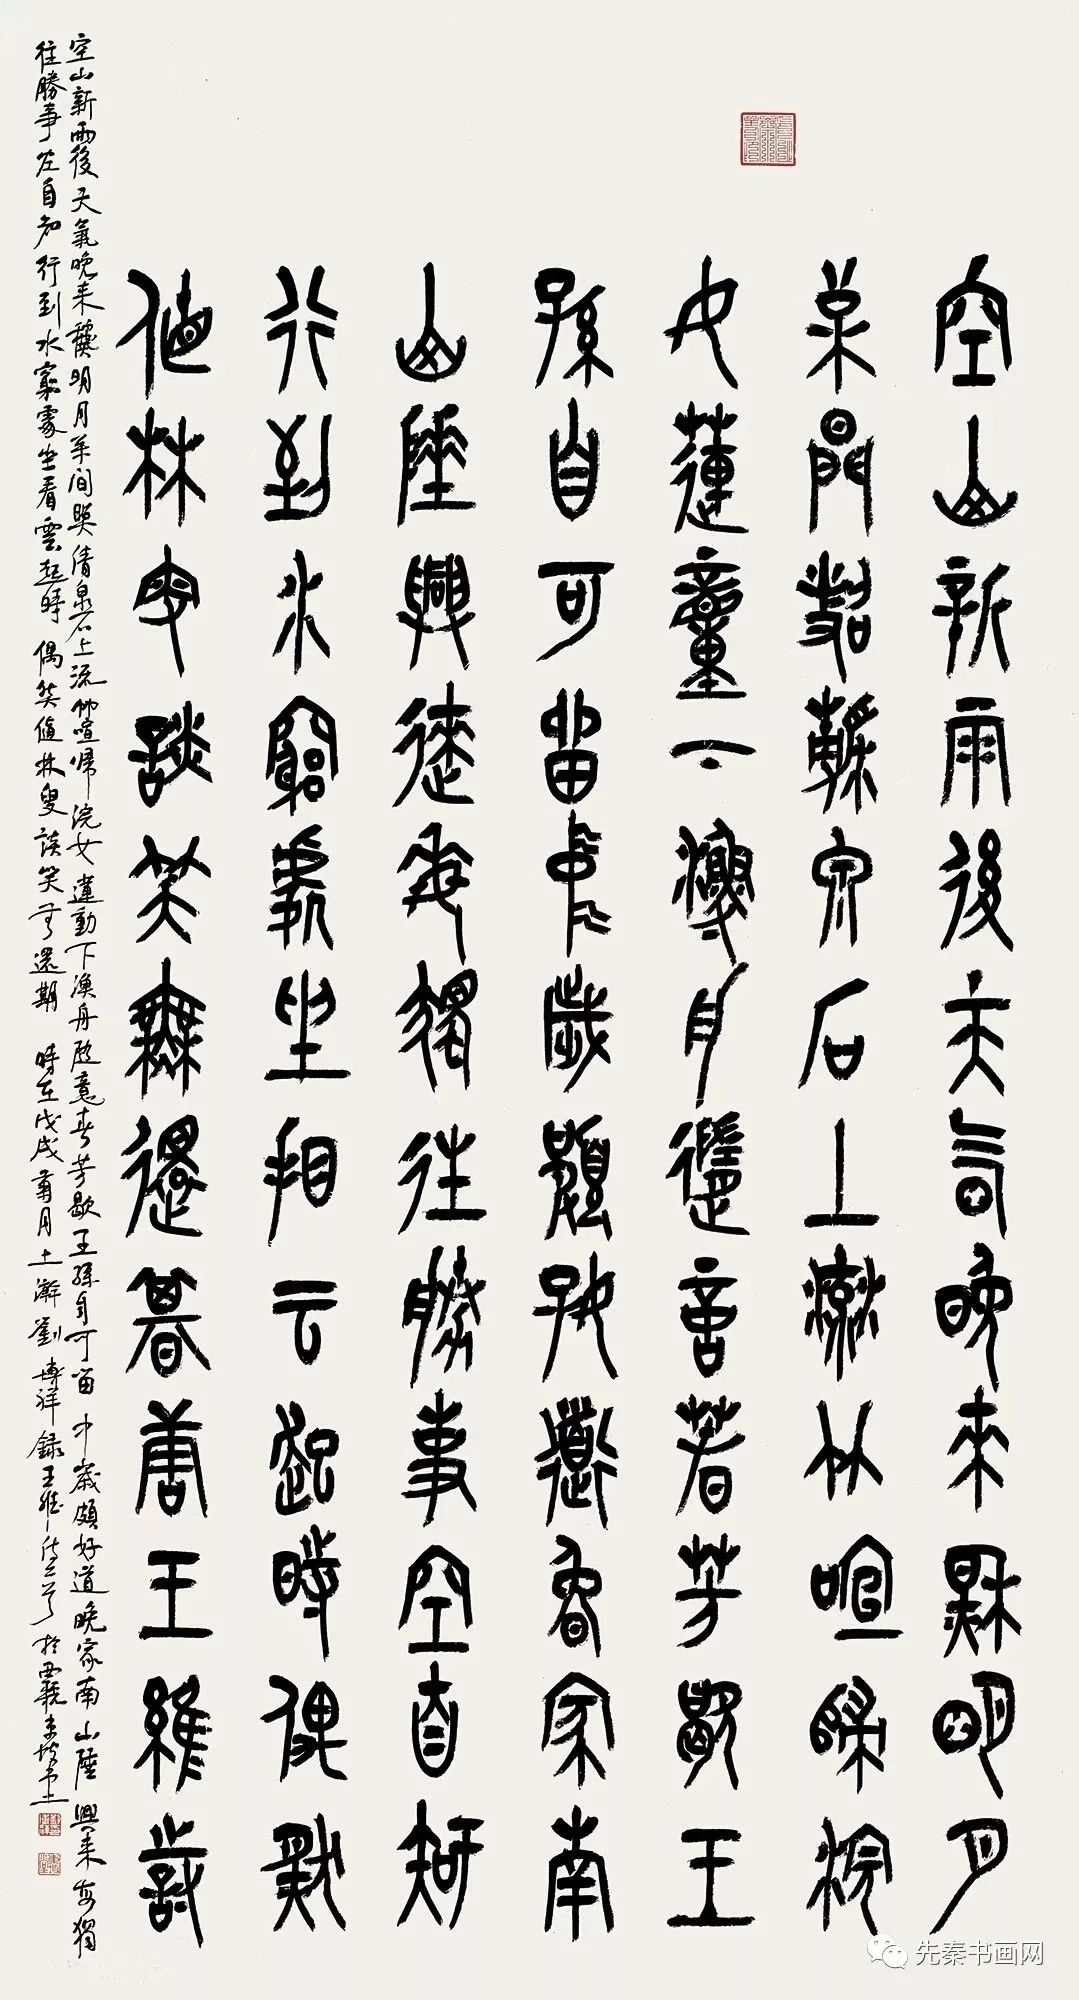 空山新雨後天气晚来秌明月
松間照清泉石上流竹喧歸浣
女蓮動下漁舟隨意春芳歇王
孫自可留中歲頗好道晚家南
山陲興来每獨往勝事空自知
行到水窮處坐看云起時偶然
值林叟談笑無還期唐王維詩
空山新雨後天氣晚来龝明月松間照清泉石上流竹喧歸浣女蓮動下漁舟隨意春芳歇王孫自可留中歲頗好道晚家南山陲興来每獨
往勝事空自知行到水窮處坐看雲起時偶然值林叟談笑無還期時在戊戌月上澣劉博祥録王維詩二首於
先秦书画网